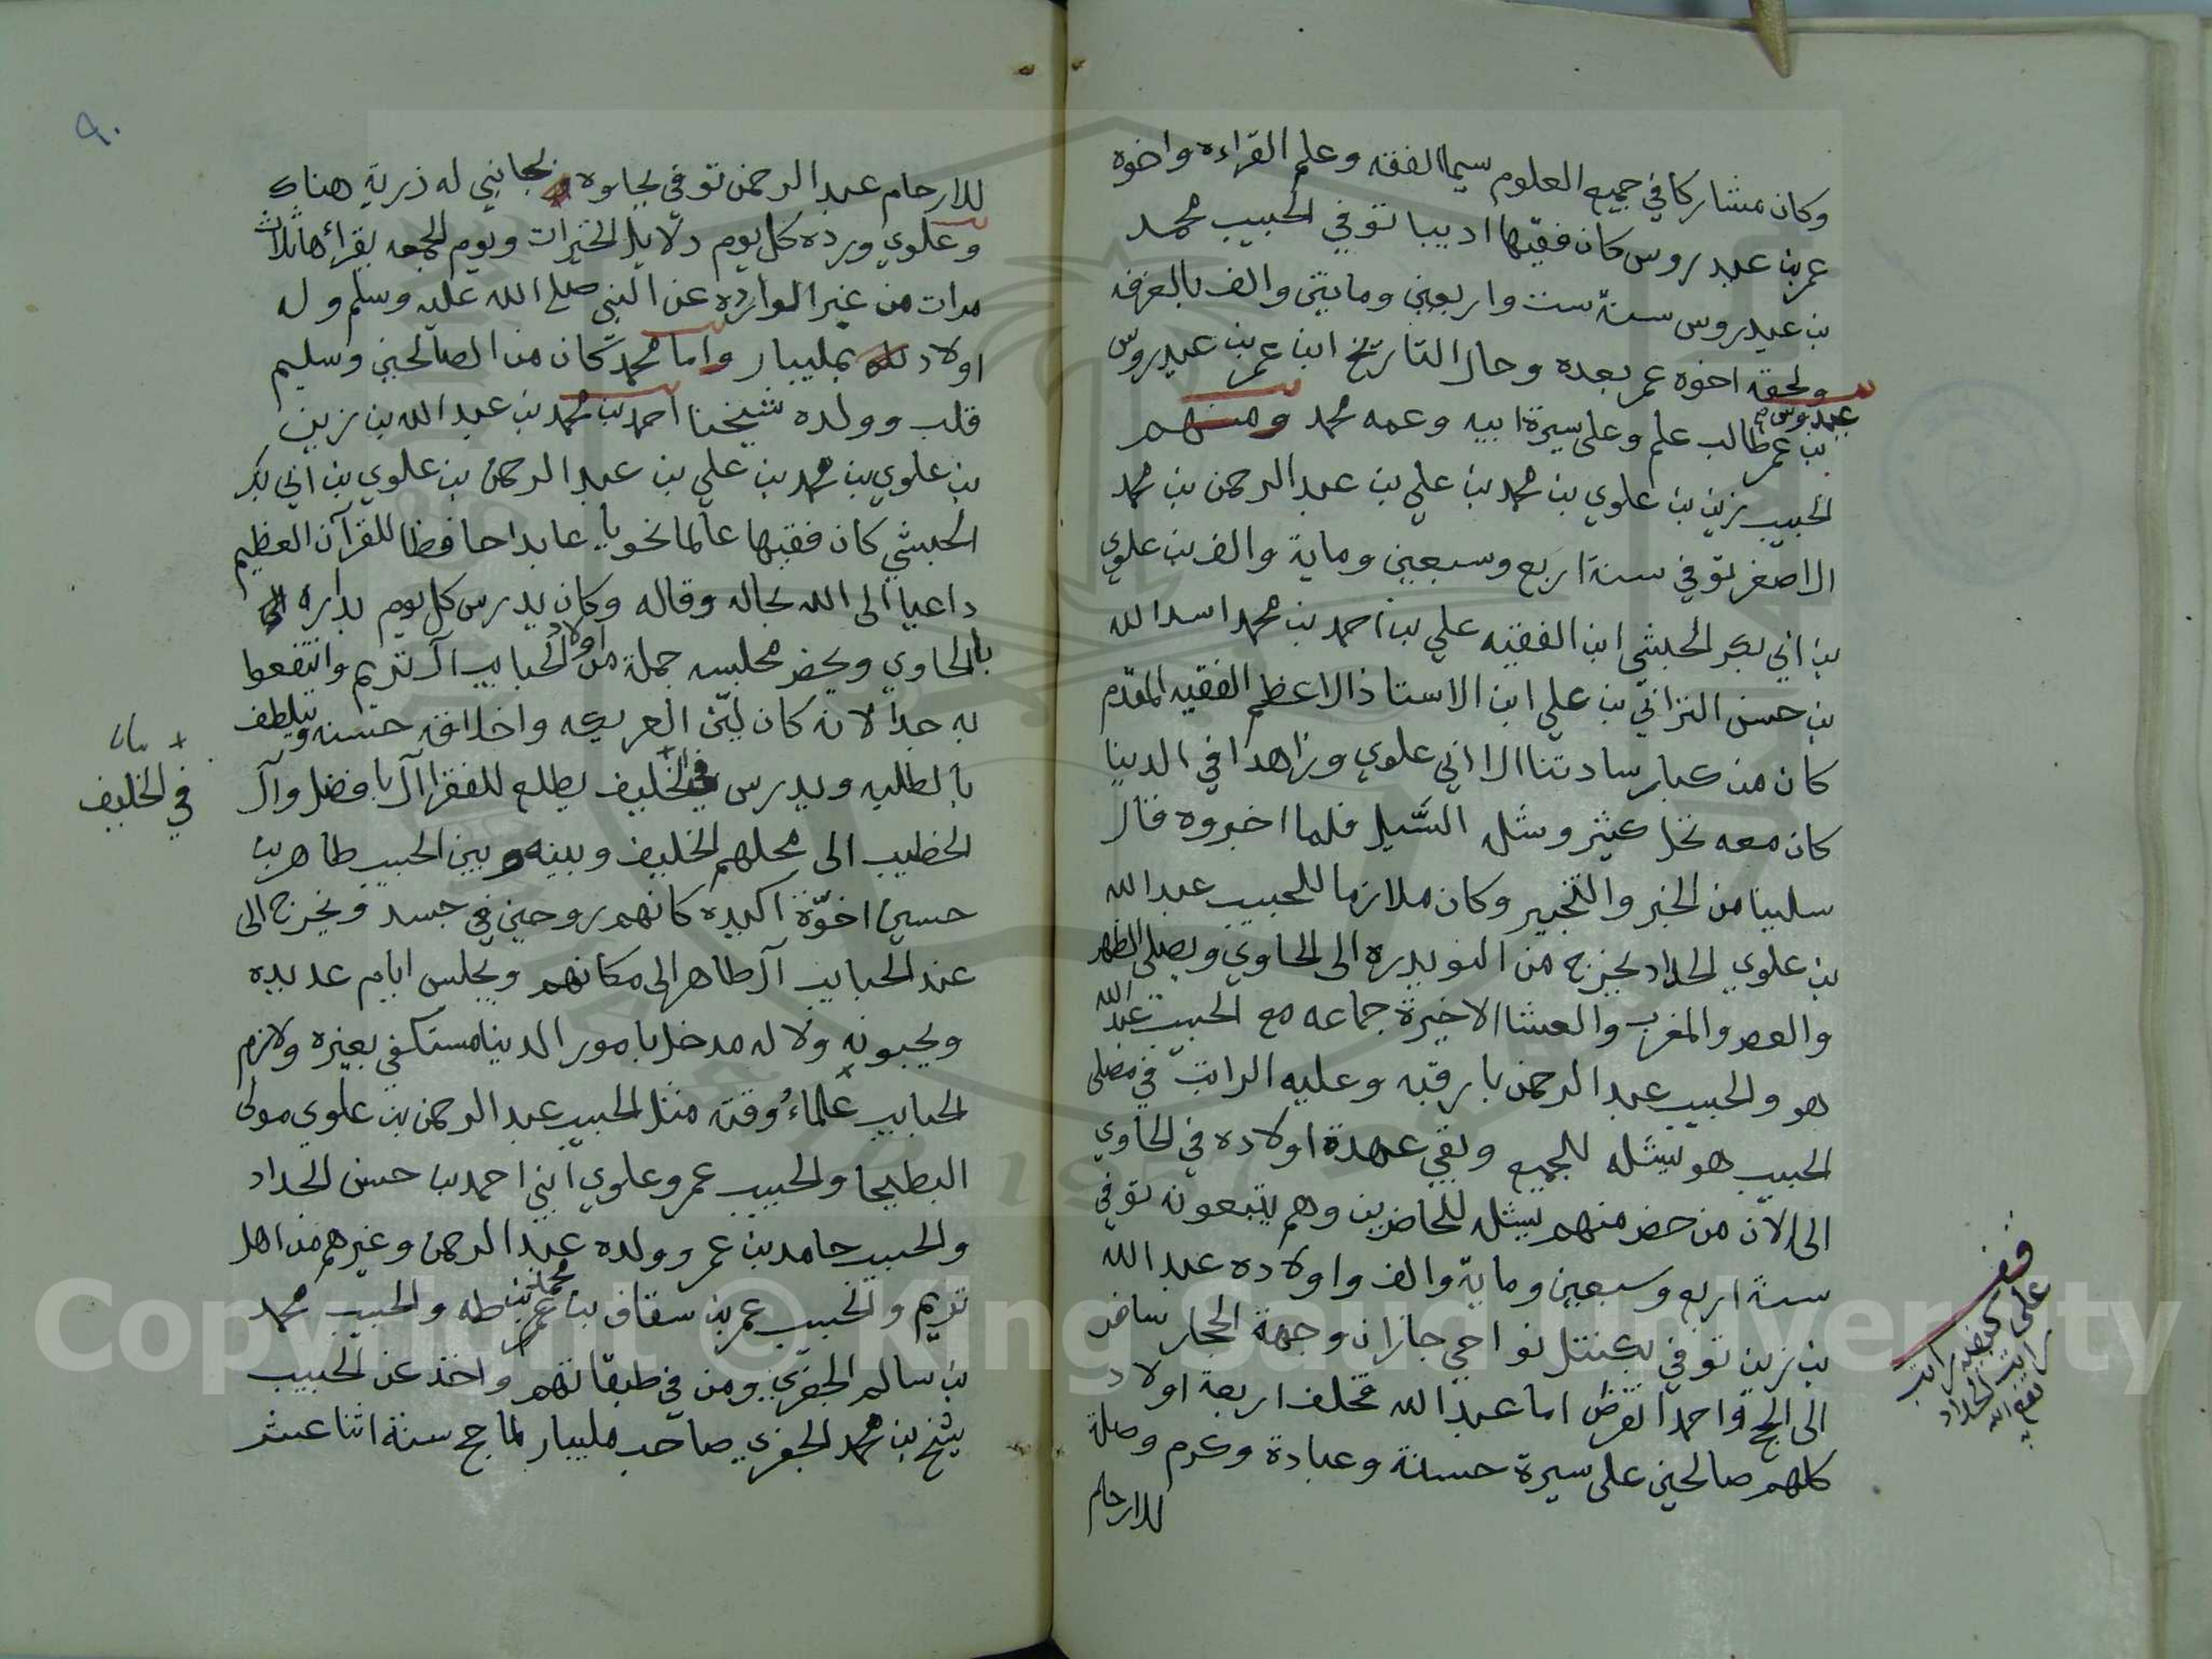 وكان مشاركا في جميع العلوم سيما الفقه وعلم القراءه واخوه
عمر بن عيدروس كان فقيها اديبا توفي الحبيب محمد
بن عيدروس سنة ست واربعين ومايتين والف بالغرفه
ولحقه اخوه عمر بعده وحال التاريخ ابن عمر بن عيدروس
عيدروس
بن عمر طالب علم وعلى سيرة ابيه وعمه محمد ومنهم
الحبيب زين بن علوي بن محمد بن علي بن عبد الرحمن بن محمد
الاصغر توفي سنة اربع وسبعين وماية والف بن علوي
بن ابي بكر الحبشي ابن الفقيه علي بن احمد بن محمد اسد الله
بن حسن الترابي بن علي ابن الاستاذ الاعظم الفقيه المقدم
كان من كبار سادتنا ال ابي علوي وزاهدا في الدنيا
كان معه نخل كثير وشله السيل فلما اخبروه قال
سلبنا من الخبر والتخبير وكان ملازما للحبيب عبد الله
بن علوي الحداد يخرج من النويدره الى الحاوي ويصلي الظهر
والعصر والمغرب والعشا الاخيرة جماعه مع الحبيب عبد الله
هو والحبيب عبد الرحمن بارقبه وعليه الراتب في مصلى
الحبيب هو يشله للجميع وبقي عهدة اولاده في الحاوي
الى الآن من حضر منهم يشله للحاضرين وهم يتبعونه توفي
سنة اربع وسبعين وماية والف واولاده عبد الله
بن زين توفي نواحي جازان وجهة الحجاز سافر
الى الحج واحمد انقرض اما عبد الله مخلف اربعة اولاد
كلهم صالحين على سيرة حسنة وعبادة وكرم وصلة
للارحام
قف
على كيفية راتب
راتب الحداد
نفع الله به
٩٠
للارحام عبد الرحمن توفي بجاوه له ذرية هناك
وعلوي ورده كل يوم دلايل الخيرات ويوم الجمعه يقرأها ثلاث
مرات من غير الوارده عن النبي صلى الله عليه وسلم وله
اولاد بمليبار واما محمد كان من الصالحين وسليم
قلب وولده شيخنا احمد بن محمد بن عبد الله بن زين
بن علوي بن محمد بن علي بن عبد الرحمن بن علوي بن ابي بكر
الحبشي كان فقيها عالما نحويا عابدا حافظا للقرآن العظيم
داعيا الى الله بحاله وقاله وكان يدرس كل يوم بداره
بالحاوي ويحضر مجلسه جملة من اولاد الحبايب آل تريم وانتفعوا
به جدا لانه كان لين العريكه واخلاقه حسنه ويلطف
بالطلبه ويدرس في الخليف يطلع للفقرا آل بافضل وآل
الخطيب الى محلهم الخليف وبينه وبين الحبيب طاهر بن
حسين اخوة اكيده كانهم روحين في جسد ويخرج الى
عند الحبايب آل طاهر الى مكانهم ويجلس ايام عديده
ويحبونه ولا له مدخل بامور الدنيا مستكفي بغيره ولازم
الحبايب علماء وقته مثل الحبيب عبد الرحمن بن علوي مولى
البطيحا والحبيب عمر وعلوي ابني احمد بن حسن الحداد
والحبيب حامد بن عمر وولده عبد الرحمن وغيرهم من اهل
تريم والحبيب عمر بن سقاف بن محمد بن عمر بن طه والحبيب محمد
بن سالم الجفري ومن في طبقاتهم واخذ عن الحبيب
شيخ بن محمد الجفري صاحب مليبار لما حج سنة اثنا عشر
في الخليف
Copyright © King Saud University
1957